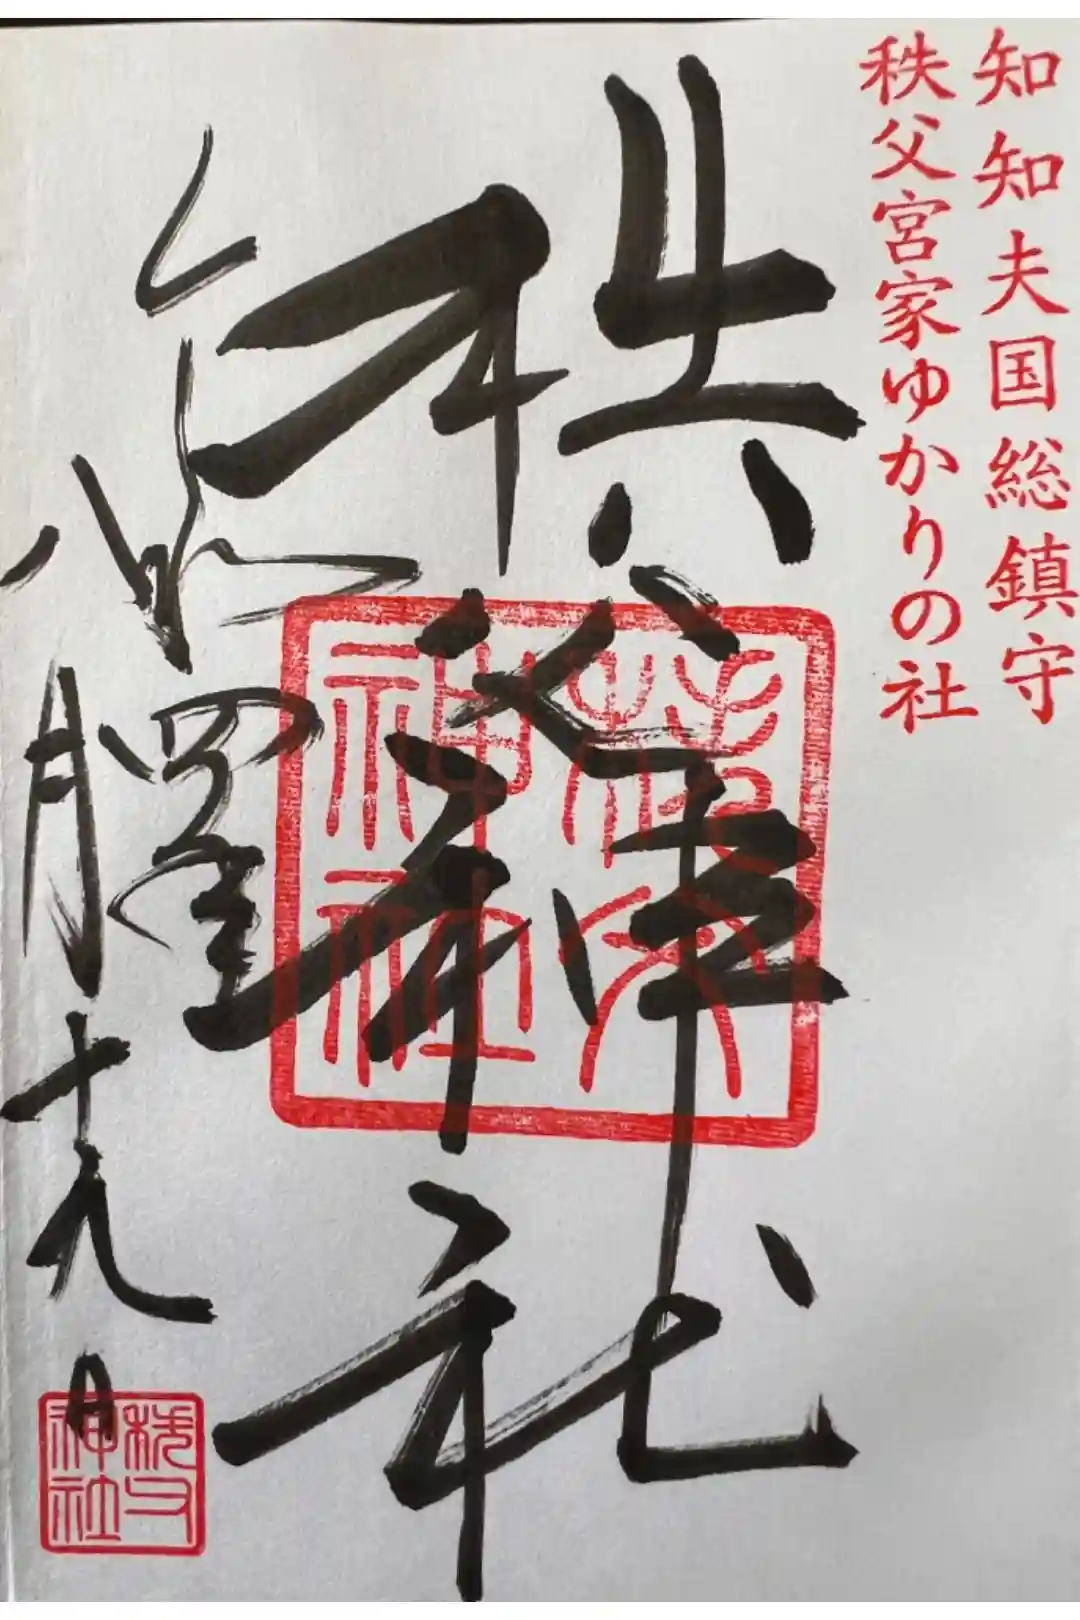 知知夫国総鎮守
秩父宮家ゆかりの社
秩父神社
秩父神社
八月十九日
秩父神社